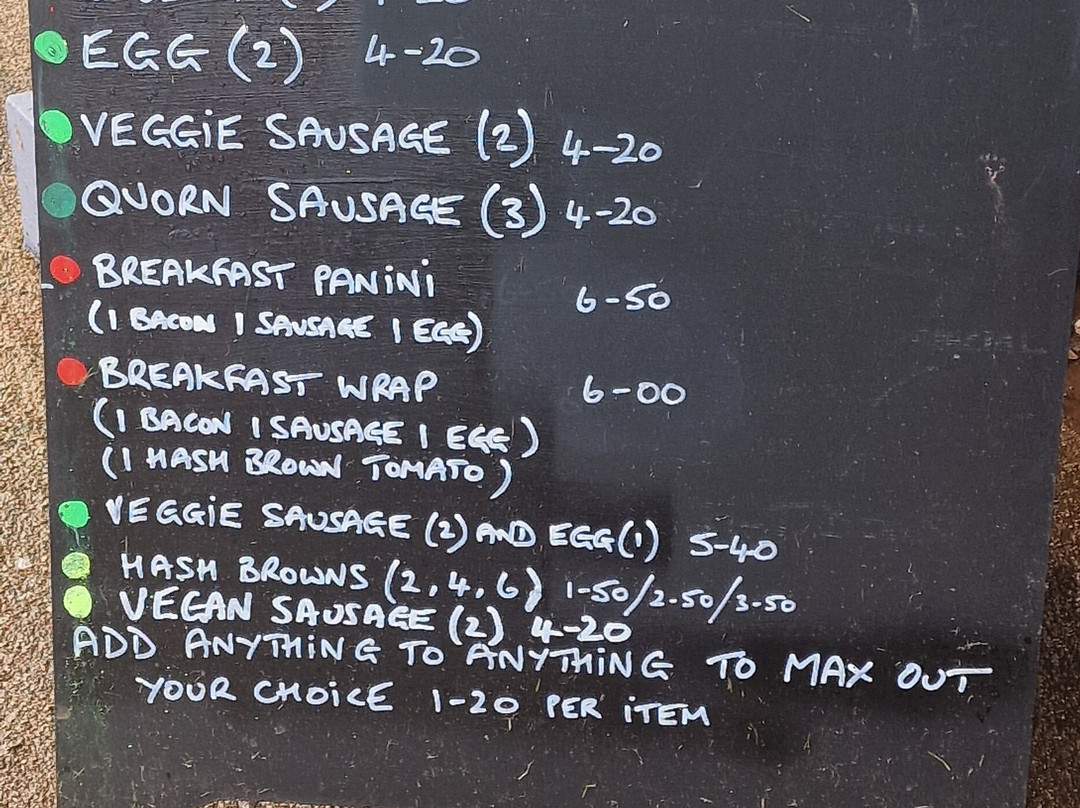 EGG (2) 4-20
VEGGiE SAUSAGE (2) 4-20
QUORN SAUSAGE (3) 4-20
BREAKFAST PANiNi 6-50
(1 BACON 1 SAUSAGE 1 EGG)
BREAKFAST WRAP 6-00
(1 BACON 1 SAUSAGE 1 EGG)
(1 HASH BROWN TOMATO)
VEGGiE SAUSAGE (2) AND EGG(1) 5-40
HASH BROWNS (2, 4, 6) 1-50/2-50/3-50
VEGAN SAUSAGE (2) 4-20
ADD ANYTHING TO ANYTHiNG TO MAX OUT
YOUR CHOiCE 1-20 PER iTEM